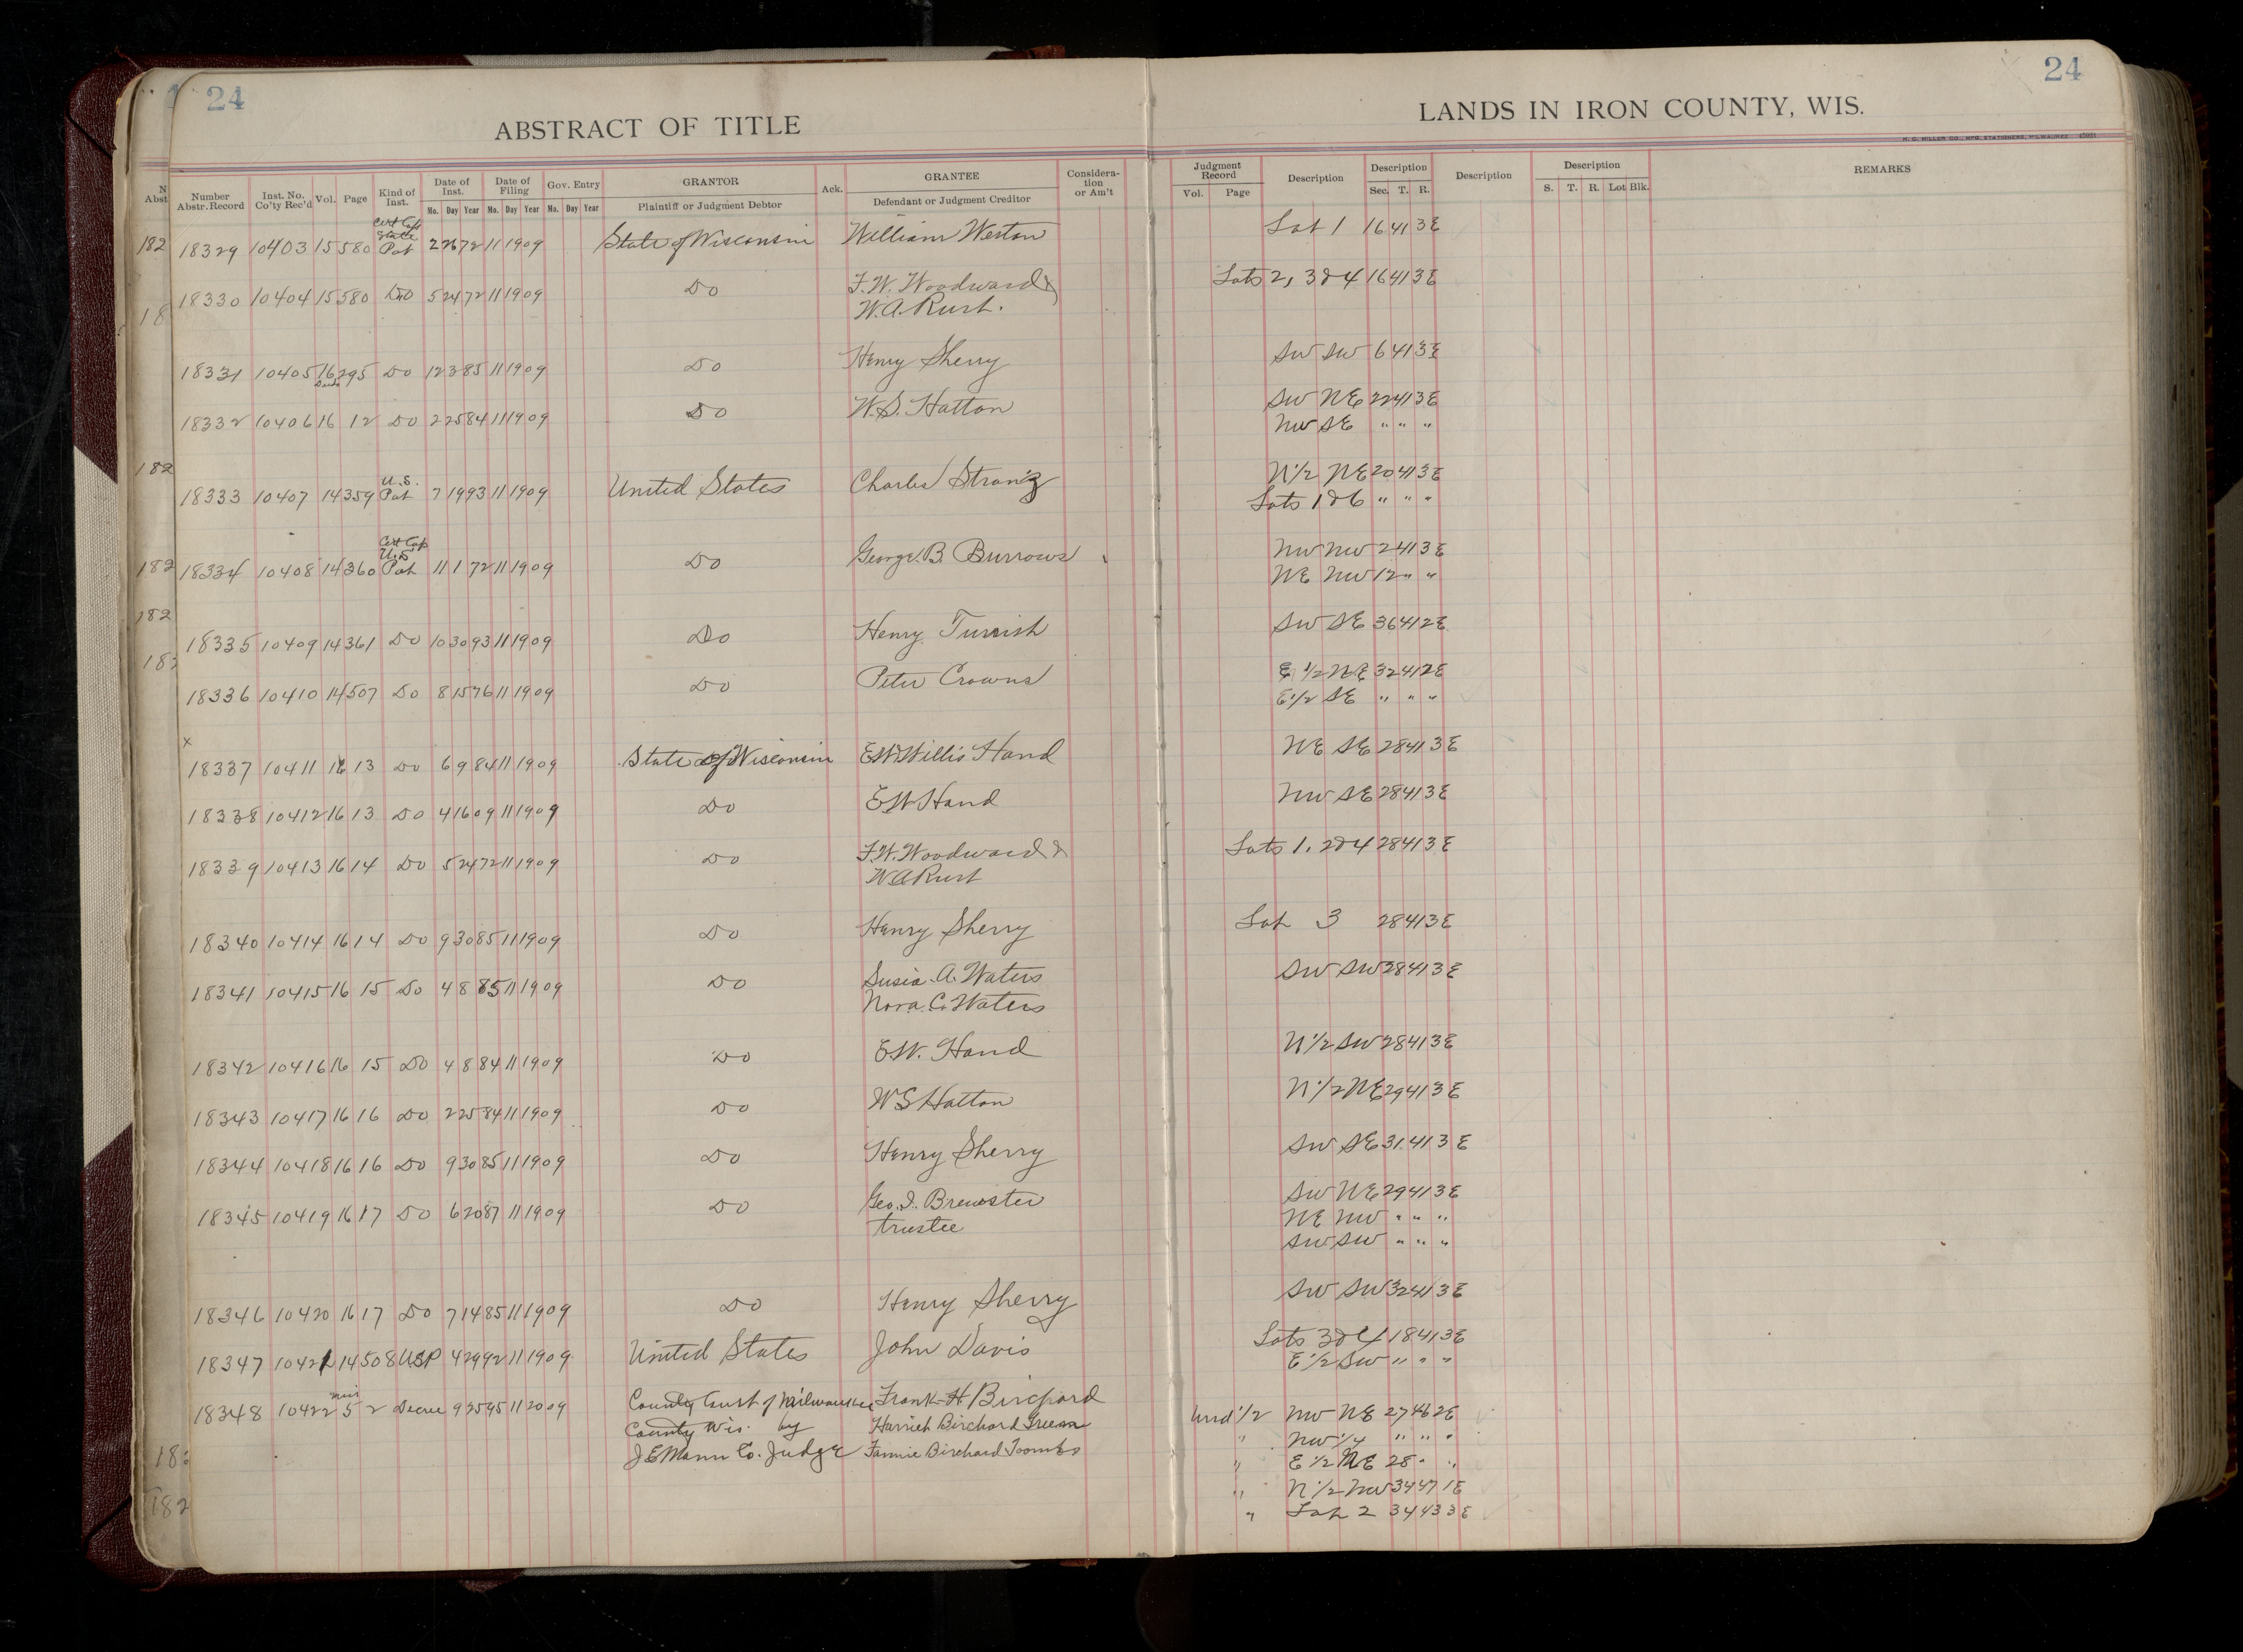 24
24
ABSTRACT OF TITLE
LANDS IN IRON COUNTY, WIS.
H. G. MILLER CO., MFG. STATIONERS, MILWAUKEE
N
Abst
Number Abstr. Record
Inst. No. Co'ty Rec'd
Vol.
Page
Kind of Inst.
Date of Inst.
Date of Filing
Gov. Entry
GRANTOR
Ack.
GRANTEE
Consideration or Am't
Judgment Record
Description
Description
Description
Description
REMARKS
Mo. Day Year Mo. Day Year Mo. Day Year
Plaintiff or Judgment Debtor
Defendant or Judgment Creditor
Vol. Page
Sec. T. R.
S. T. R. Lot Blk.
Cert Cop
State
182 18329 10403 15 580 Pat 2 26 72 11 19 09 State of Wisconsin William Weston Lot 1 16 41 3E
18330 10404 15 580 Do 5 24 72 11 19 09 Do F. W. Woodward & Lots 2, 3 & 4 16 41 3E
18 W. A. Rust.
18331 10405 16 295 Do 12 3 85 11 19 09 Do Henry Sherry SW SW 6 41 3E
Deeds
18332 10406 16 12 Do 2 25 84 11 19 09 Do W. S. Hatton SW NE 22 41 3E
NW SE " " "
182
U.S.
18333 10407 14 359 Pat 7 19 93 11 19 09 United States Charles Strong N 1/2 NE 20 41 3E
Lots 1 & 6 " " "
Cert Cop
U.S
182 18334 10408 14 360 Pat 11 1 72 11 19 09 Do George B. Burrows NW NW 2 41 3E
NE NW 12 " "
182
18335 10409 14 361 Do 10 30 93 11 19 09 Do Henry Turrish SW SE 36 41 2E
18336 10410 14 507 Do 8 15 76 11 19 09 Do Peter Crowns E 1/2 NE 32 41 2E
E 1/2 SE " " "
x
18337 10411 16 13 Do 6 9 84 11 19 09 State of Wisconsin EW Willis Hand NE SE 28 41 3E
18338 10412 16 13 Do 4 16 09 11 19 09 Do E W Hand NW SE 28 41 3E
18339 10413 16 14 Do 5 24 72 11 19 09 Do F. W. Woodward & Lots 1, 2 & 4 28 41 3E
W A Rust
18340 10414 16 14 Do 9 30 85 11 19 09 Do Henry Sherry Lot 3 28 41 3E
18341 10415 16 15 Do 4 8 85 11 19 09 Do Susia A. Waters SW SW 28 41 3E
Nora C. Waters
18342 10416 16 15 Do 4 8 84 11 19 09 Do E W. Hand N 1/2 SW 28 41 3E
18343 10417 16 16 Do 2 25 84 11 19 09 Do W S Hatton N 1/2 NE 29 41 3E
18344 10418 16 16 Do 9 30 85 11 19 09 Do Henry Sherry SW SE 31 41 3E
18345 10419 16 17 Do 6 20 87 11 19 09 Do Geo. I. Brewster SW NE 29 41 3E
trustee NE NW " " "
SW SW " " "
18346 10420 16 17 Do 7 14 85 11 19 09 Do Henry Sherry SW SW 32 41 3E
18347 10421 14 508 USP 4 29 92 11 19 09 United States John Davis Lots 3 & 4 18 41 3E
E 1/2 SW " " "
Mis
18348 10422 5 2 Decree 9 25 95 11 20 09 County Court of Milwaukee Frank H Birchard Und 1/2 NW NE 27 46 2E
County Wis. by Harriet Birchard Green " NW 1/4 " " "
J E Mann Co. Judge Fannie Birchard Toombs " E 1/2 NE 28 " "
" N 1/2 NW 34 47 1E
182 " Lot 2 34 43 3E